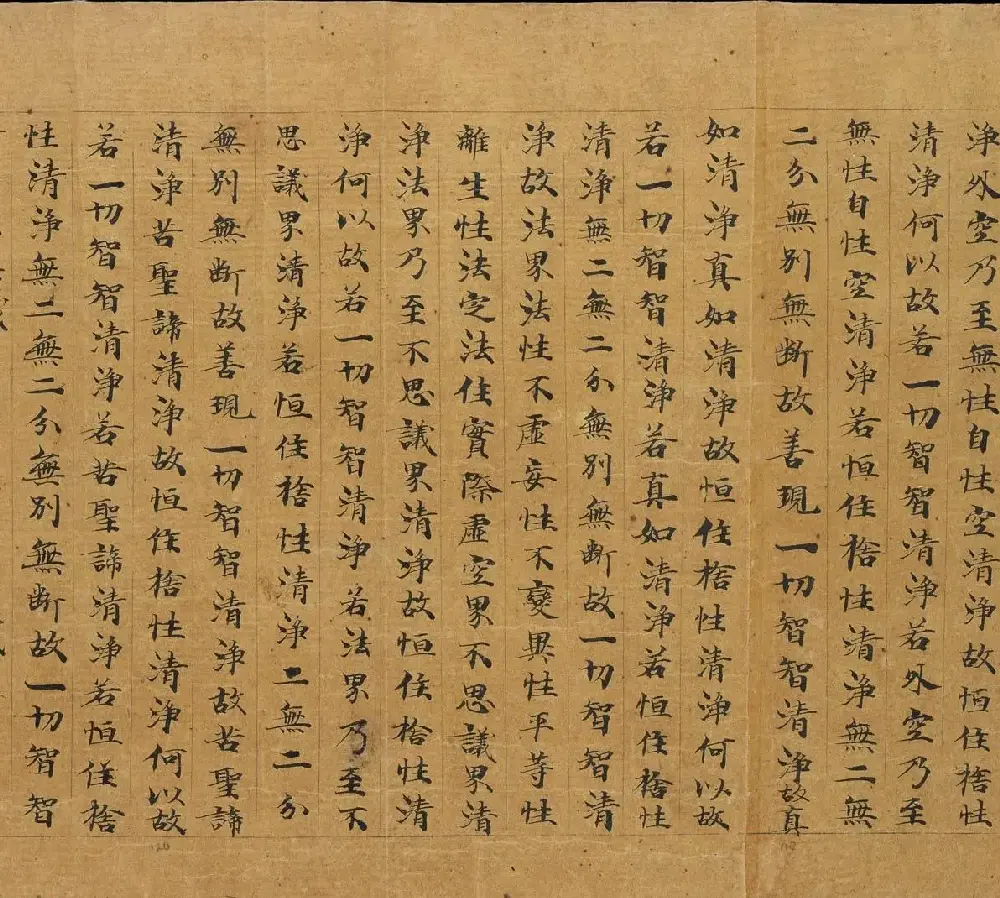 淨外空乃至無性自性空清淨故恒住捨性
清淨何以故若一切智智清淨若外空乃至
無性自性空清淨若恒住捨性清淨無二無
二分無別無斷故善現一切智智清淨故真
如清淨真如清淨故恒住捨性清淨何以故
若一切智智清淨若真如清淨若恒住捨性
清淨無二無二分無別無斷故一切智智清
淨故法界法性不虛妄性不變異性平等性
離生性法定法住實際虛空界不思議界清
淨法界乃至不思議界清淨故恒住捨性清
淨何以故若一切智智清淨若法界乃至不
思議界清淨若恒住捨性清淨二無二分
無別無斷故善現一切智智清淨故苦聖諦
清淨苦聖諦清淨故恒住捨性清淨何以故
若一切智智清淨若苦聖諦清淨若恒住捨
性清淨無二無二分無別無斷故一切智智